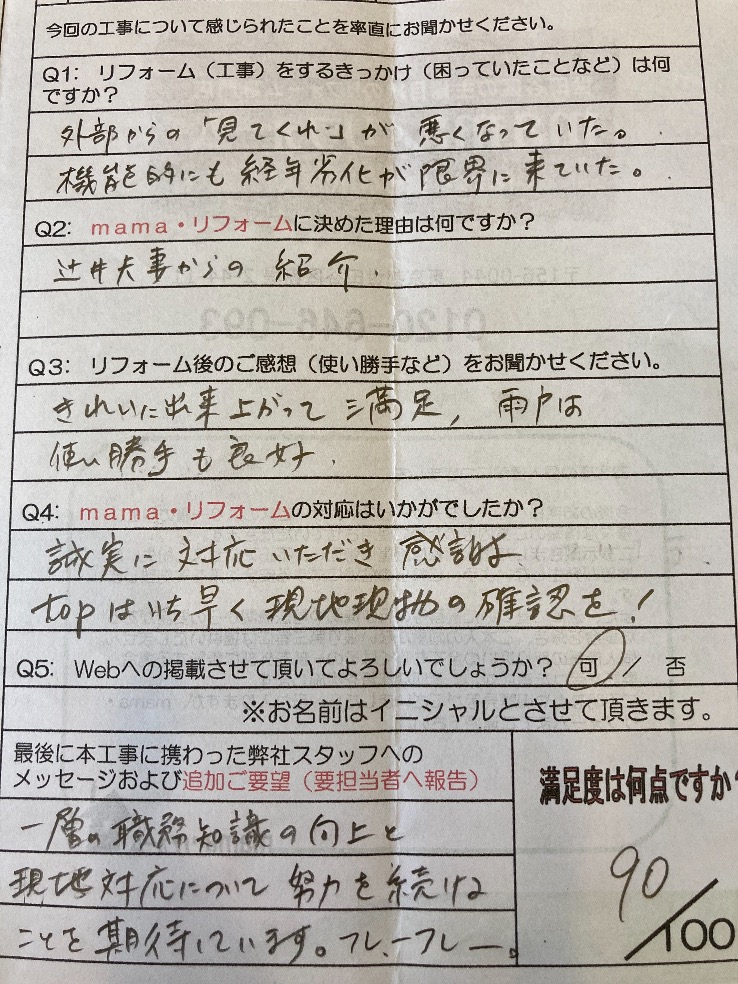 今回の工事について感じられたことを率直にお聞かせください。
Q1: リフォーム（工事）をするきっかけ（困っていたことなど）は何
ですか？
外部からの「見てくれ」が 悪くなっていた。
機能的にも経年劣化が限界に来ていた。
Q2: mama・リフォームに決めた理由は何ですか？
辻井夫妻からの 紹介.
Q3: リフォーム後のご感想（使い勝手など）をお聞かせください。
きれいに出来上がって満足, 雨戸は
使い勝手も良好.
Q4: mama・リフォームの対応はいかがでしたか？
誠実に対応いただき 感謝
topはいち早く現地現物の確認を！
Q5: Webへの掲載させて頂いてよろしいでしょうか？ 可 / 否
※お名前はイニシャルとさせて頂きます。
最後に本工事に携わった弊社スタッフへの
メッセージおよび追加ご要望（要担当者へ報告）
一層の職務知識の向上と
現地対応について努力を続ける
ことを期待しています。フレーフレー。
満足度は何点ですか?
90/100